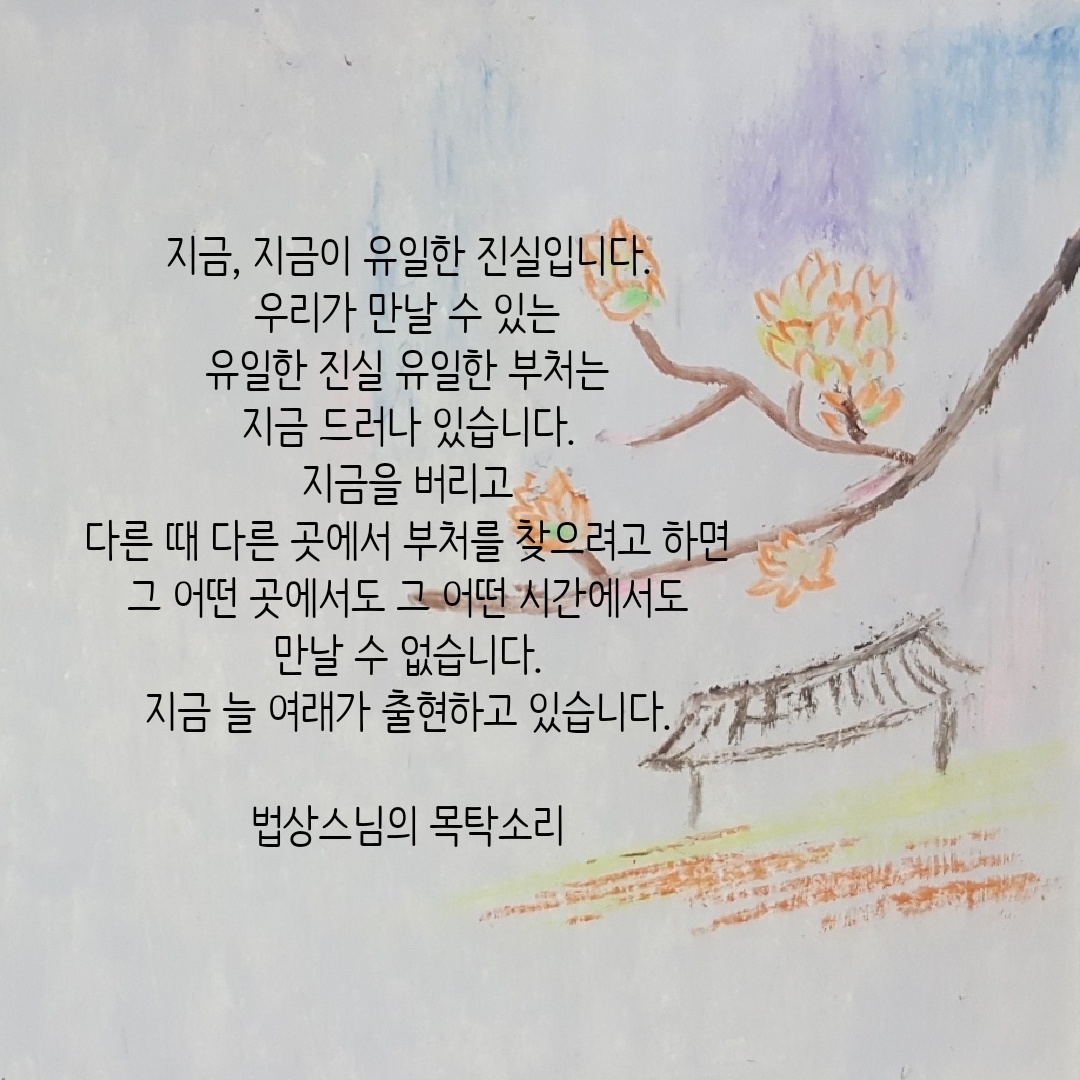 지금, 지금이 유일한 진실입니다.
우리가 만날 수 있는
유일한 진실 유일한 부처는
지금 드러나 있습니다.
지금을 버리고
다른 때 다른 곳에서 부처를 찾으려고 하면
그 어떤 곳에서도 그 어떤 시간에서도
만날 수 없습니다.
지금 늘 여래가 출현하고 있습니다.
법상스님의 목탁소리